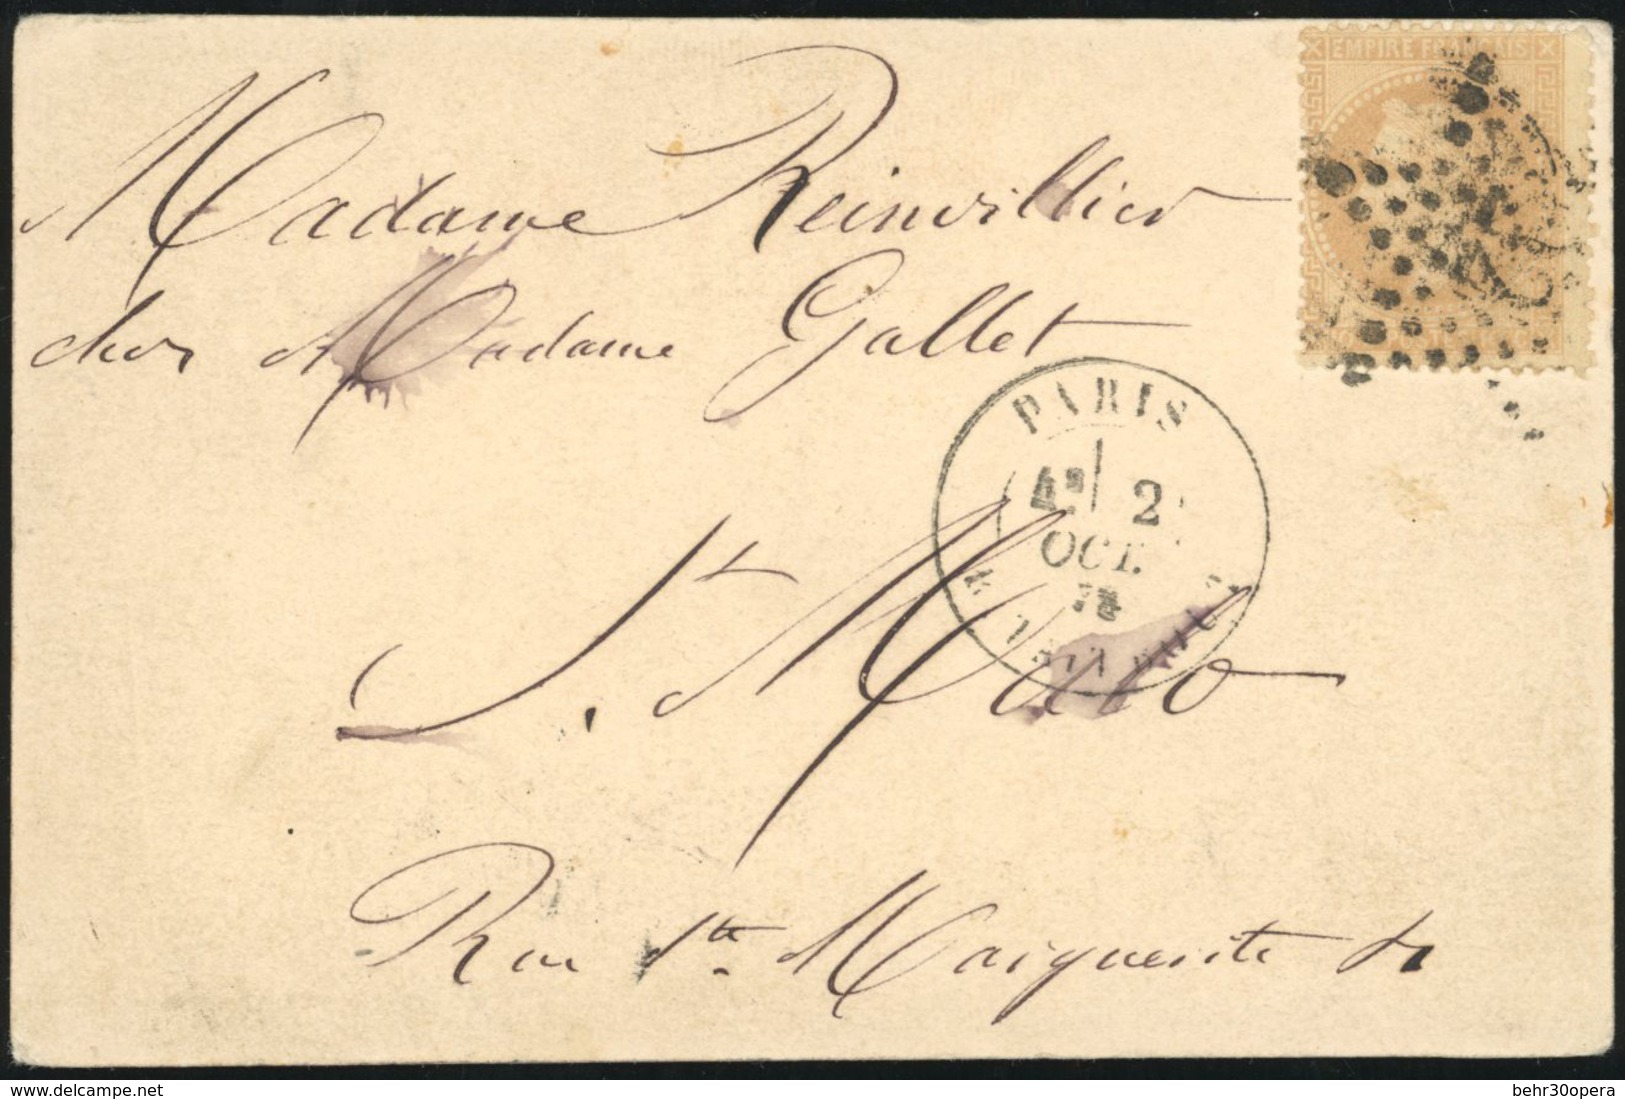 EMPIRE FRANÇAIS
Madame Reinvillier
chez Madame Gallet
PARIS
2
OCT.
St. Malo
Rue Ste Marguerite
delcampe.net
behr30opera